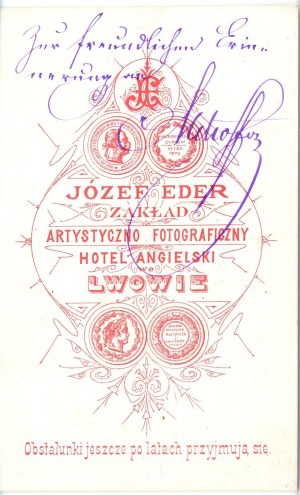 Zur freundlichen Erin-
nerung an
JE
JÓZEF EDER
ZAKŁAD
ARTYSTYCZNO FOTOGRAFICZNY
HOTEL ANGIELSKI
WE
LWOWIE
Obstalunki jeszcze po latach przyjmują się.